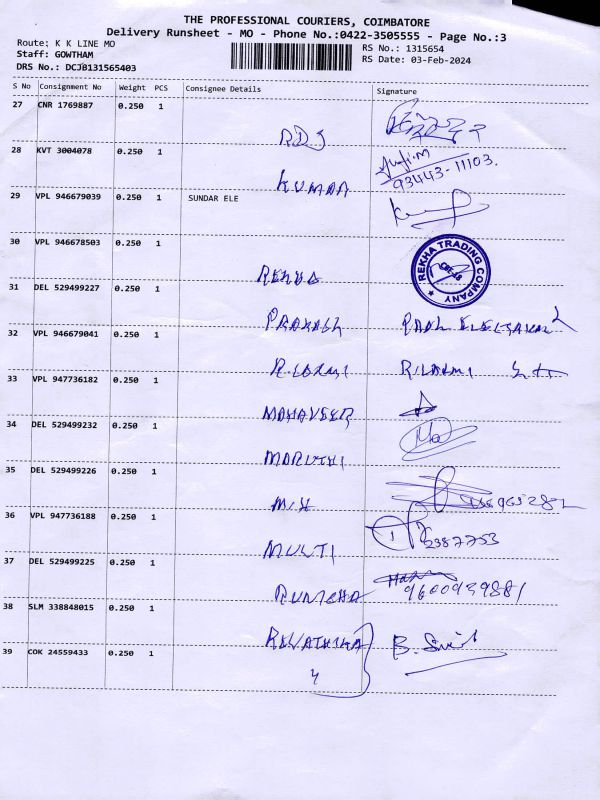 THE PROFESSIONAL COURIERS, COIMBATORE
Delivery Runsheet - MO - Phone No.:0422-3505555 - Page No.:3
Route: K K LINE MO
RS No.: 1315654
Staff: GOWTHAM
RS Date: 03-Feb-2024
DRS No.: DCJB131565403
S No Consignment No Weight PCS Consignee Details Signature
27 CNR 1769887 0.250 1
RDS
28 KVT 3004078 0.250 1
KUMAR 93443-11103.
29 VPL 946679039 0.250 1 SUNDAR ELE
30 VPL 946678503 0.250 1
REKHA TRADING COMPANY
CBE-18
REKHA
31 DEL 529499227 0.250 1
PRAKASH
32 VPL 946679041 0.250 1
R.LAXMI R.LAXMI
33 VPL 947736182 0.250 1
MAHAVEER
34 DEL 529499232 0.250 1
MARUTHI
35 DEL 529499226 0.250 1
36 VPL 947736188 0.250 1
MULTI 2387753
37 DEL 529499225 0.250 1
9600939881
38 SLM 338848015 0.250 1
REVATHI
39 COK 24559433 0.250 1